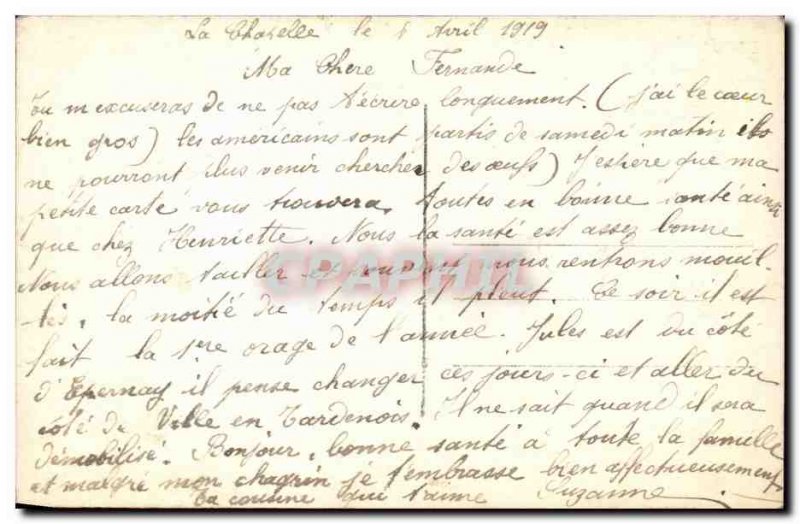 La Chapelle le 8 Avril 1919
Ma Chere Fernande
Tu m excuseras de ne pas t'écrire longuement. (j'ai le cœur
bien gros) les americains sont partis de samedi matin ils
ne pourront plus venir chercher des œufs) J'espère que ma
petite carte vous trouvera toutes en bonne santé ainsi
que chez Henriette. Nous la santé est assez bonne
Nous allons tailler et nous rentrons mouil-
-lés, la moitié du temps il pleut. Ce soir il est
fait la 1ere orage de l'année. Jules est du côté
d'Epernay il pense changer ces jours-ci et aller du
côté de Ville en Tardenois. Il ne sait quand il sera
démobilisé. Bonjour, bonne santé à toute la famille
et malgré mon chagrin je t'embrasse bien affectueusement
Ta cousine qui t'aime Suzanne
CPAPHIL